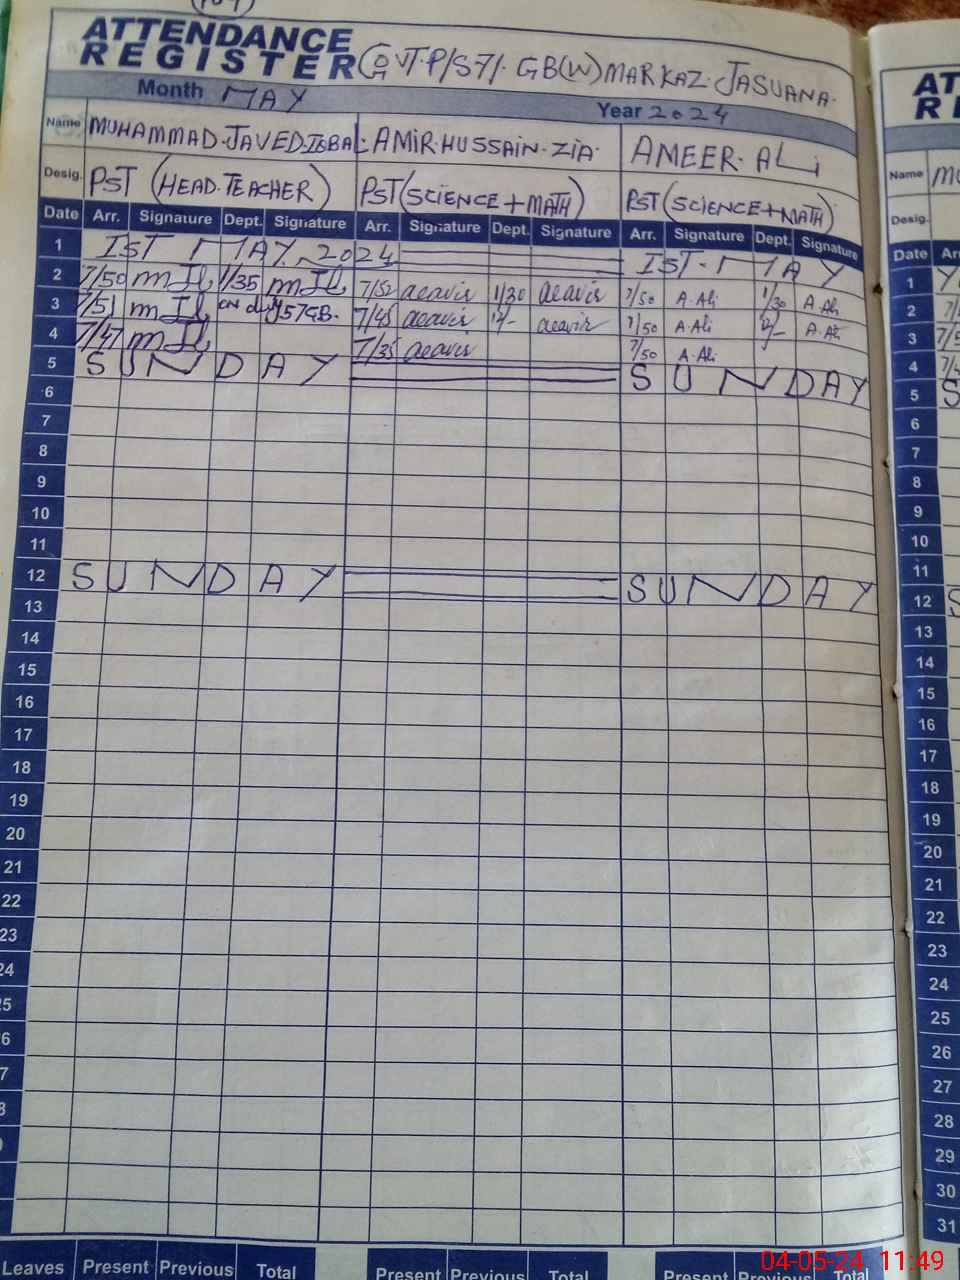 ATTENDANCE
REGISTER GOVT.P/S.71.GB(W)MARKAZ.JASUANA.
Month MAY Year 2024
Name MUHAMMAD.JAVED.IQBAL. AMIR.HUSSAIN.ZIA. AMEER.ALi Name
Desig. PST (HEAD.TEACHER) PST(SCIENCE+MATH) PST(SCIENCE+MATH) Desig.
Date Arr. Signature Dept. Signature Arr. Signature Dept. Signature Arr. Signature Dept. Signature Date
1 IST MAY.2024 IST.MAY 1
2 7/50 1/35 7/52 1/30 7/50 A.Ali 1/30 A.Ali 2
3 7/51 on duty 57GB. 7/45 12/- 7/50 A.Ali 12/- A.Ali 3
4 7/47 7/35 7/50 A.Ali 4
5 SUNDAY SUNDAY 5
6 6
7 7
8 8
9 9
10 10
11 11
12 SUNDAY SUNDAY 12
13 13
14 14
15 15
16 16
17 17
18 18
19 19
20 20
21 21
22 22
23 23
24 24
25 25
6 26
7 27
8 28
29
30
31
Leaves Present Previous Total Present Previous Total Present Previous Total
04-05-24 11:49